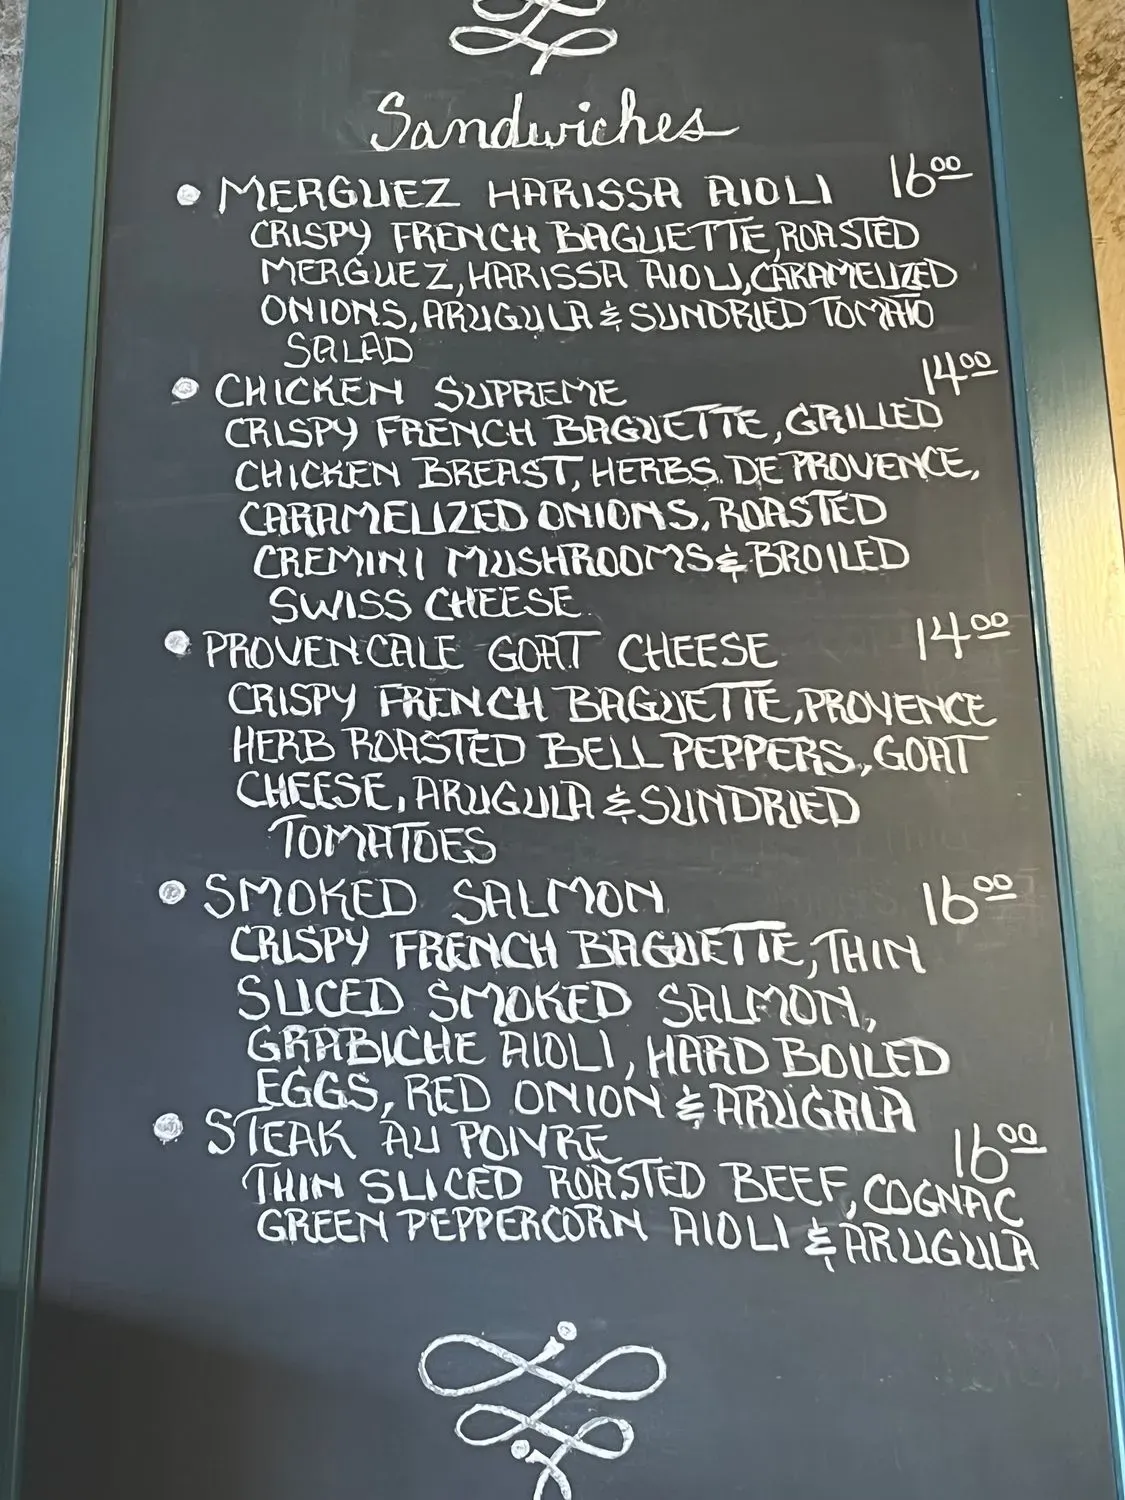 Sandwiches
• MERGUEZ HARISSA AIOLI 16⁰⁰
CRISPY FRENCH BAGUETTE, ROASTED
MERGUEZ, HARISSA AIOLI, CARAMELIZED
ONIONS, ARUGULA & SUNDRIED TOMATO
SALAD
• CHICKEN SUPREME 14⁰⁰
CRISPY FRENCH BAGUETTE, GRILLED
CHICKEN BREAST, HERBS DE PROVENCE,
CARAMELIZED ONIONS, ROASTED
CREMINI MUSHROOMS & BROILED
SWISS CHEESE
• PROVENCALE GOAT CHEESE 14⁰⁰
CRISPY FRENCH BAGUETTE, PROVENCE
HERB ROASTED BELL PEPPERS, GOAT
CHEESE, ARUGULA & SUNDRIED
TOMATOES
• SMOKED SALMON 16⁰⁰
CRISPY FRENCH BAGUETTE, THIN
SLICED SMOKED SALMON,
GRABICHE AIOLI, HARD BOILED
EGGS, RED ONION & ARUGALA
• STEAK AU POIVRE 16⁰⁰
THIN SLICED ROASTED BEEF, COGNAC
GREEN PEPPERCORN AIOLI & ARUGULA